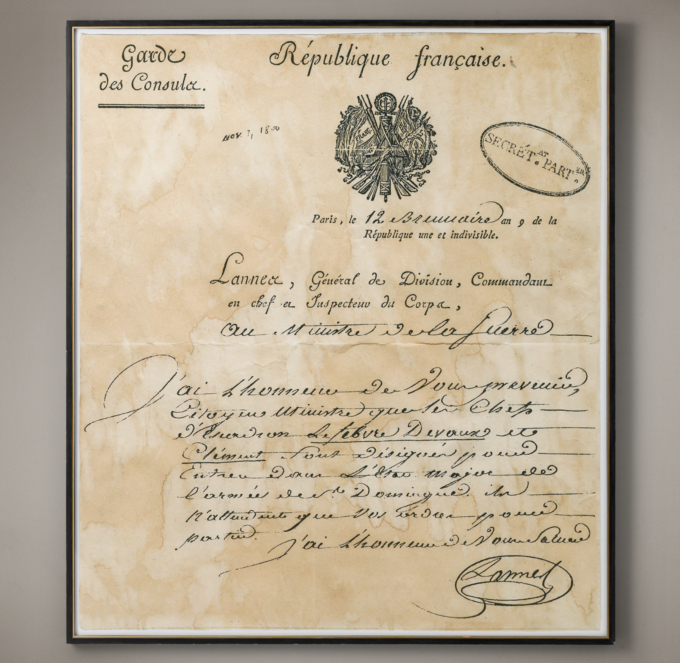 Garde
des Consuls.
République française.
Nov 3, 1800
SECRÉT.AT PART.ER
Paris, le 12 Brumaire an 9 de la
République une et indivisible.
Lannes, Général de Division, Commandant
en chef et Inspecteur du Corps,
au Ministre de la Guerre
J'ai l'honneur de Vous prevenir,
Citoyen Ministre que les Chefs
d'Escadron Lefebvre Devaux et
Clément sont désignés pour
Entrer dans l'état major de
l'armée de St. Domingue. ils
n'attendent que vos ordres pour
partir.
J'ai l'honneur de Vous Saluer
Lannes